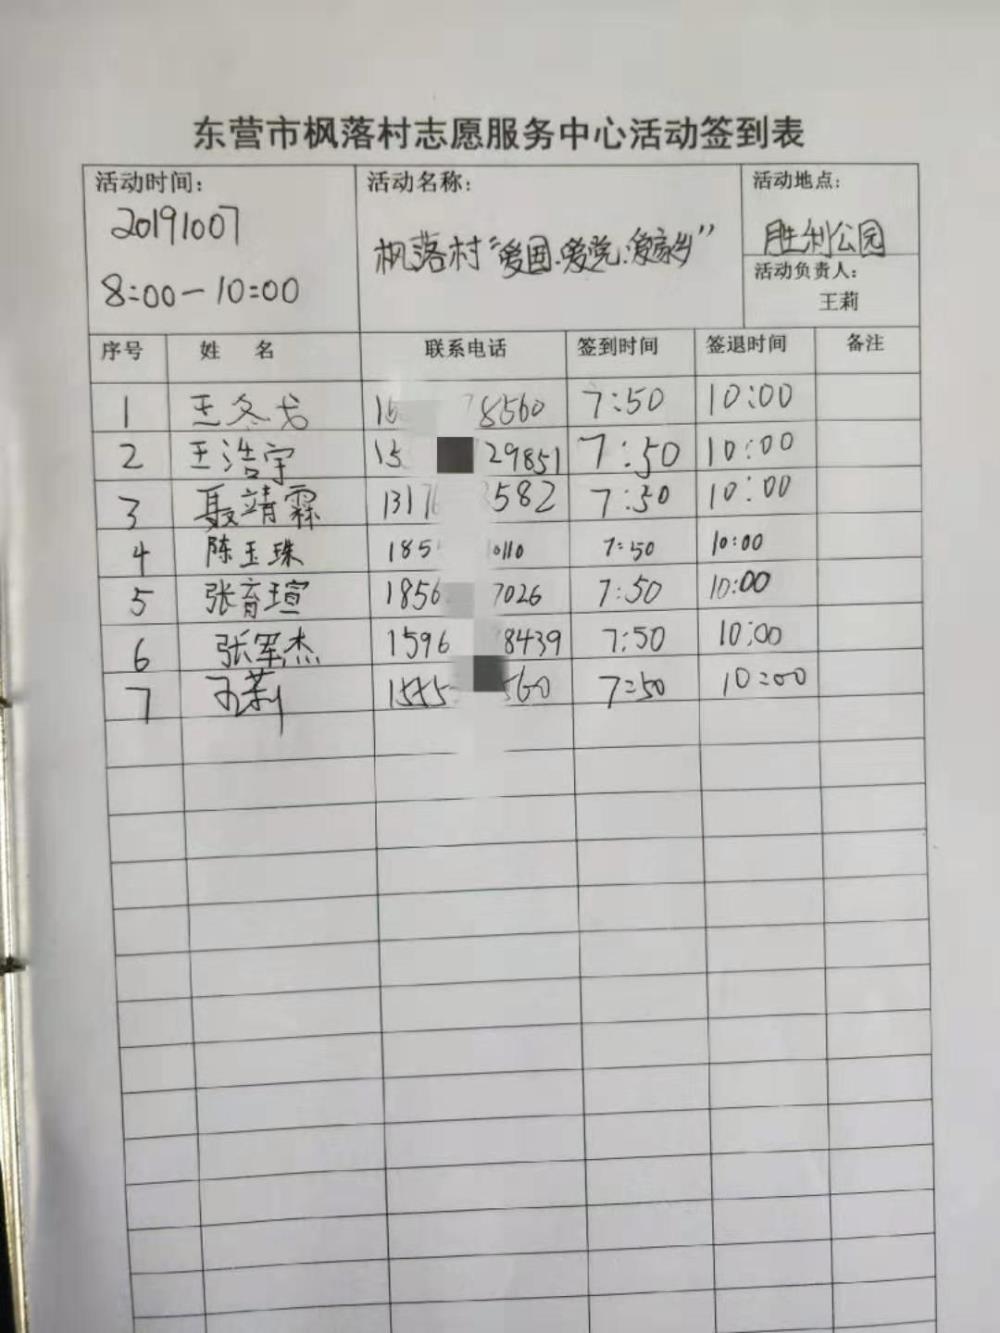 东营市枫落村志愿服务中心活动签到表
活动时间： 活动名称： 活动地点：
20191007 枫落村“爱国.爱党.爱家乡” 胜利公园
8:00-10:00 活动负责人：
王莉
序号 姓 名 联系电话 签到时间 签退时间 备注
1 王冬戈 8560 7:50 10:00
2 王浩宇 15 29851 7:50 10:00
3 聂靖霖 1317 582 7:50 10:00
4 陈玉珠 185 0110 7:50 10:00
5 张育瑄 1856 7026 7:50 10:00
6 张军杰 1596 8439 7:50 10:00
7 王莉 560 7:50 10:00